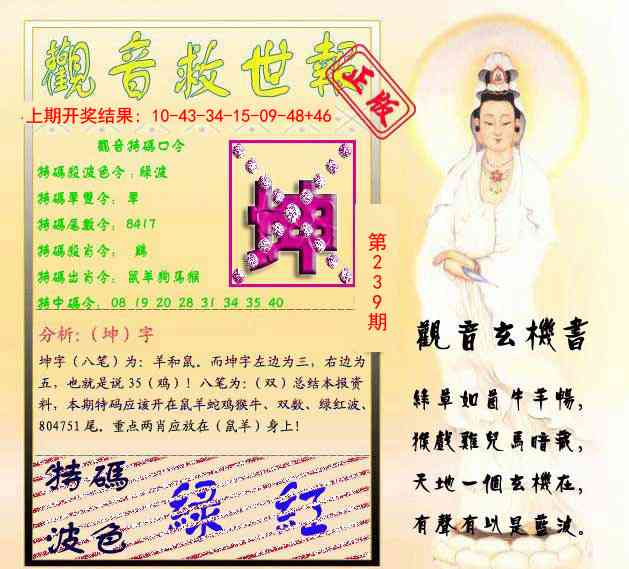 觀音救世報
正版
上期开奖结果：10-43-34-15-09-48+46
觀音特碼口令
特碼殺波色令：綠波
特碼單雙令：單
特碼尾數令：8417
特碼殺肖令：鷄
特碼出肖令：鼠羊狗馬猴
特中碼令：08 19 20 28 31 34 35 40
坤
第239期
分析：（坤）字
坤字（八笔）为：羊和鼠。而坤字左边为三，右边为
五，也就是说 35（鸡）！八笔为：（双）总结本报资
料，本期特码应该开在鼠羊蛇鸡猴牛、双数、绿红波、
804751 尾。重点两肖应放在（鼠羊）身上！
特碼
波色
綠 紅
觀音玄機書
綠草如茵牛羊暢，
猴戲雞兒馬暗藏，
天地一個玄機在，
有聲有以是藍波。